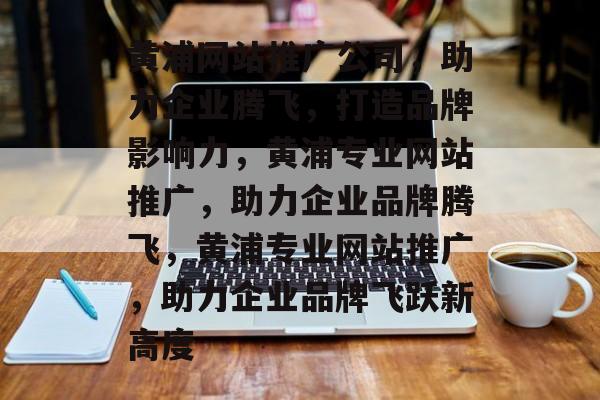 黄浦网站推广公司，助
力企业腾飞，打造品牌
影响力，黄浦专业网站
推广，助力企业品牌腾
飞，黄浦专业网站推广
，助力企业品牌飞跃新
高度